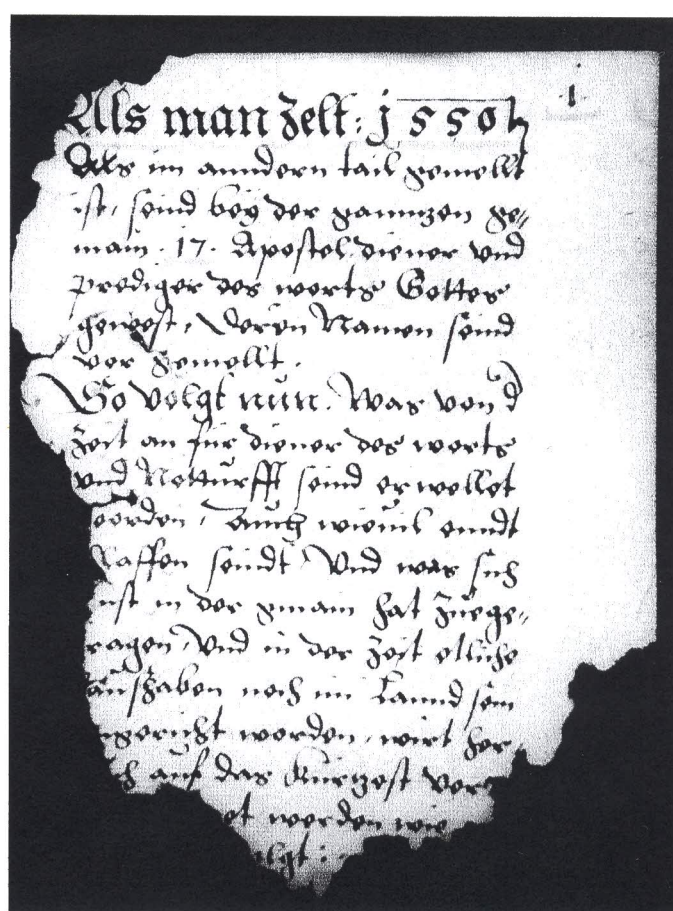 ·1·
Als man zelt: j550
Als im anndern tail gemellt
ist, seind bey der ganntzen ge¬
main · 17 · Apostel, diener vnd
prediger des worts Gottes
gewest, Deren Namen seind
vor gemellt.
So volgt nun. Was von d
Zeit an für diener des worts
vnd Notturfft seind erwellet
orden, Auch wieuil enndt
laffen seindt, Vnd was sich
nst in der gmain hat Zuege¬
ragen, Vnd in der Zeit etliche
aushaben noch im Lannd sein
gericht worden, wirt her¬
ch auf das Kürtzest ver
et werden wie
olgt: